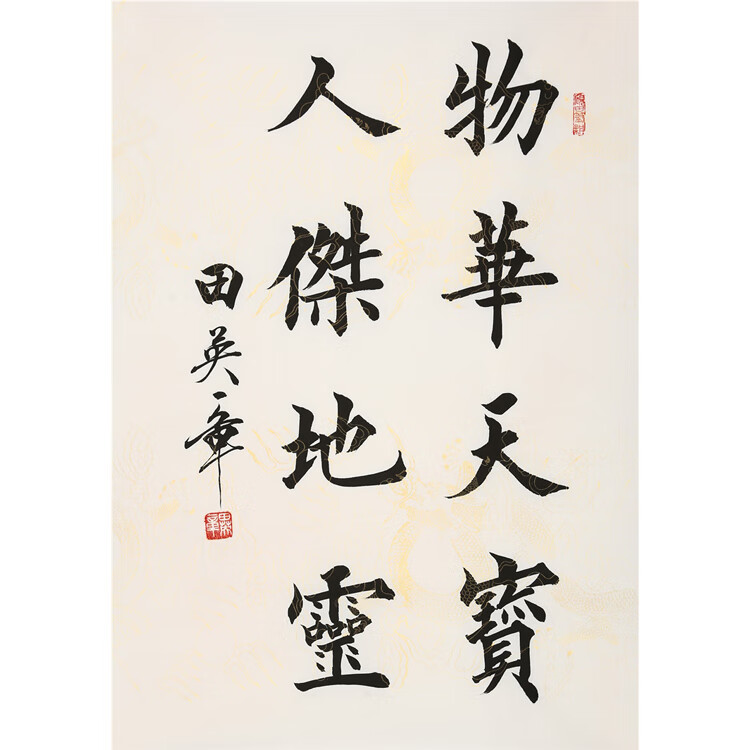 物華天寶
人傑地靈
田英章